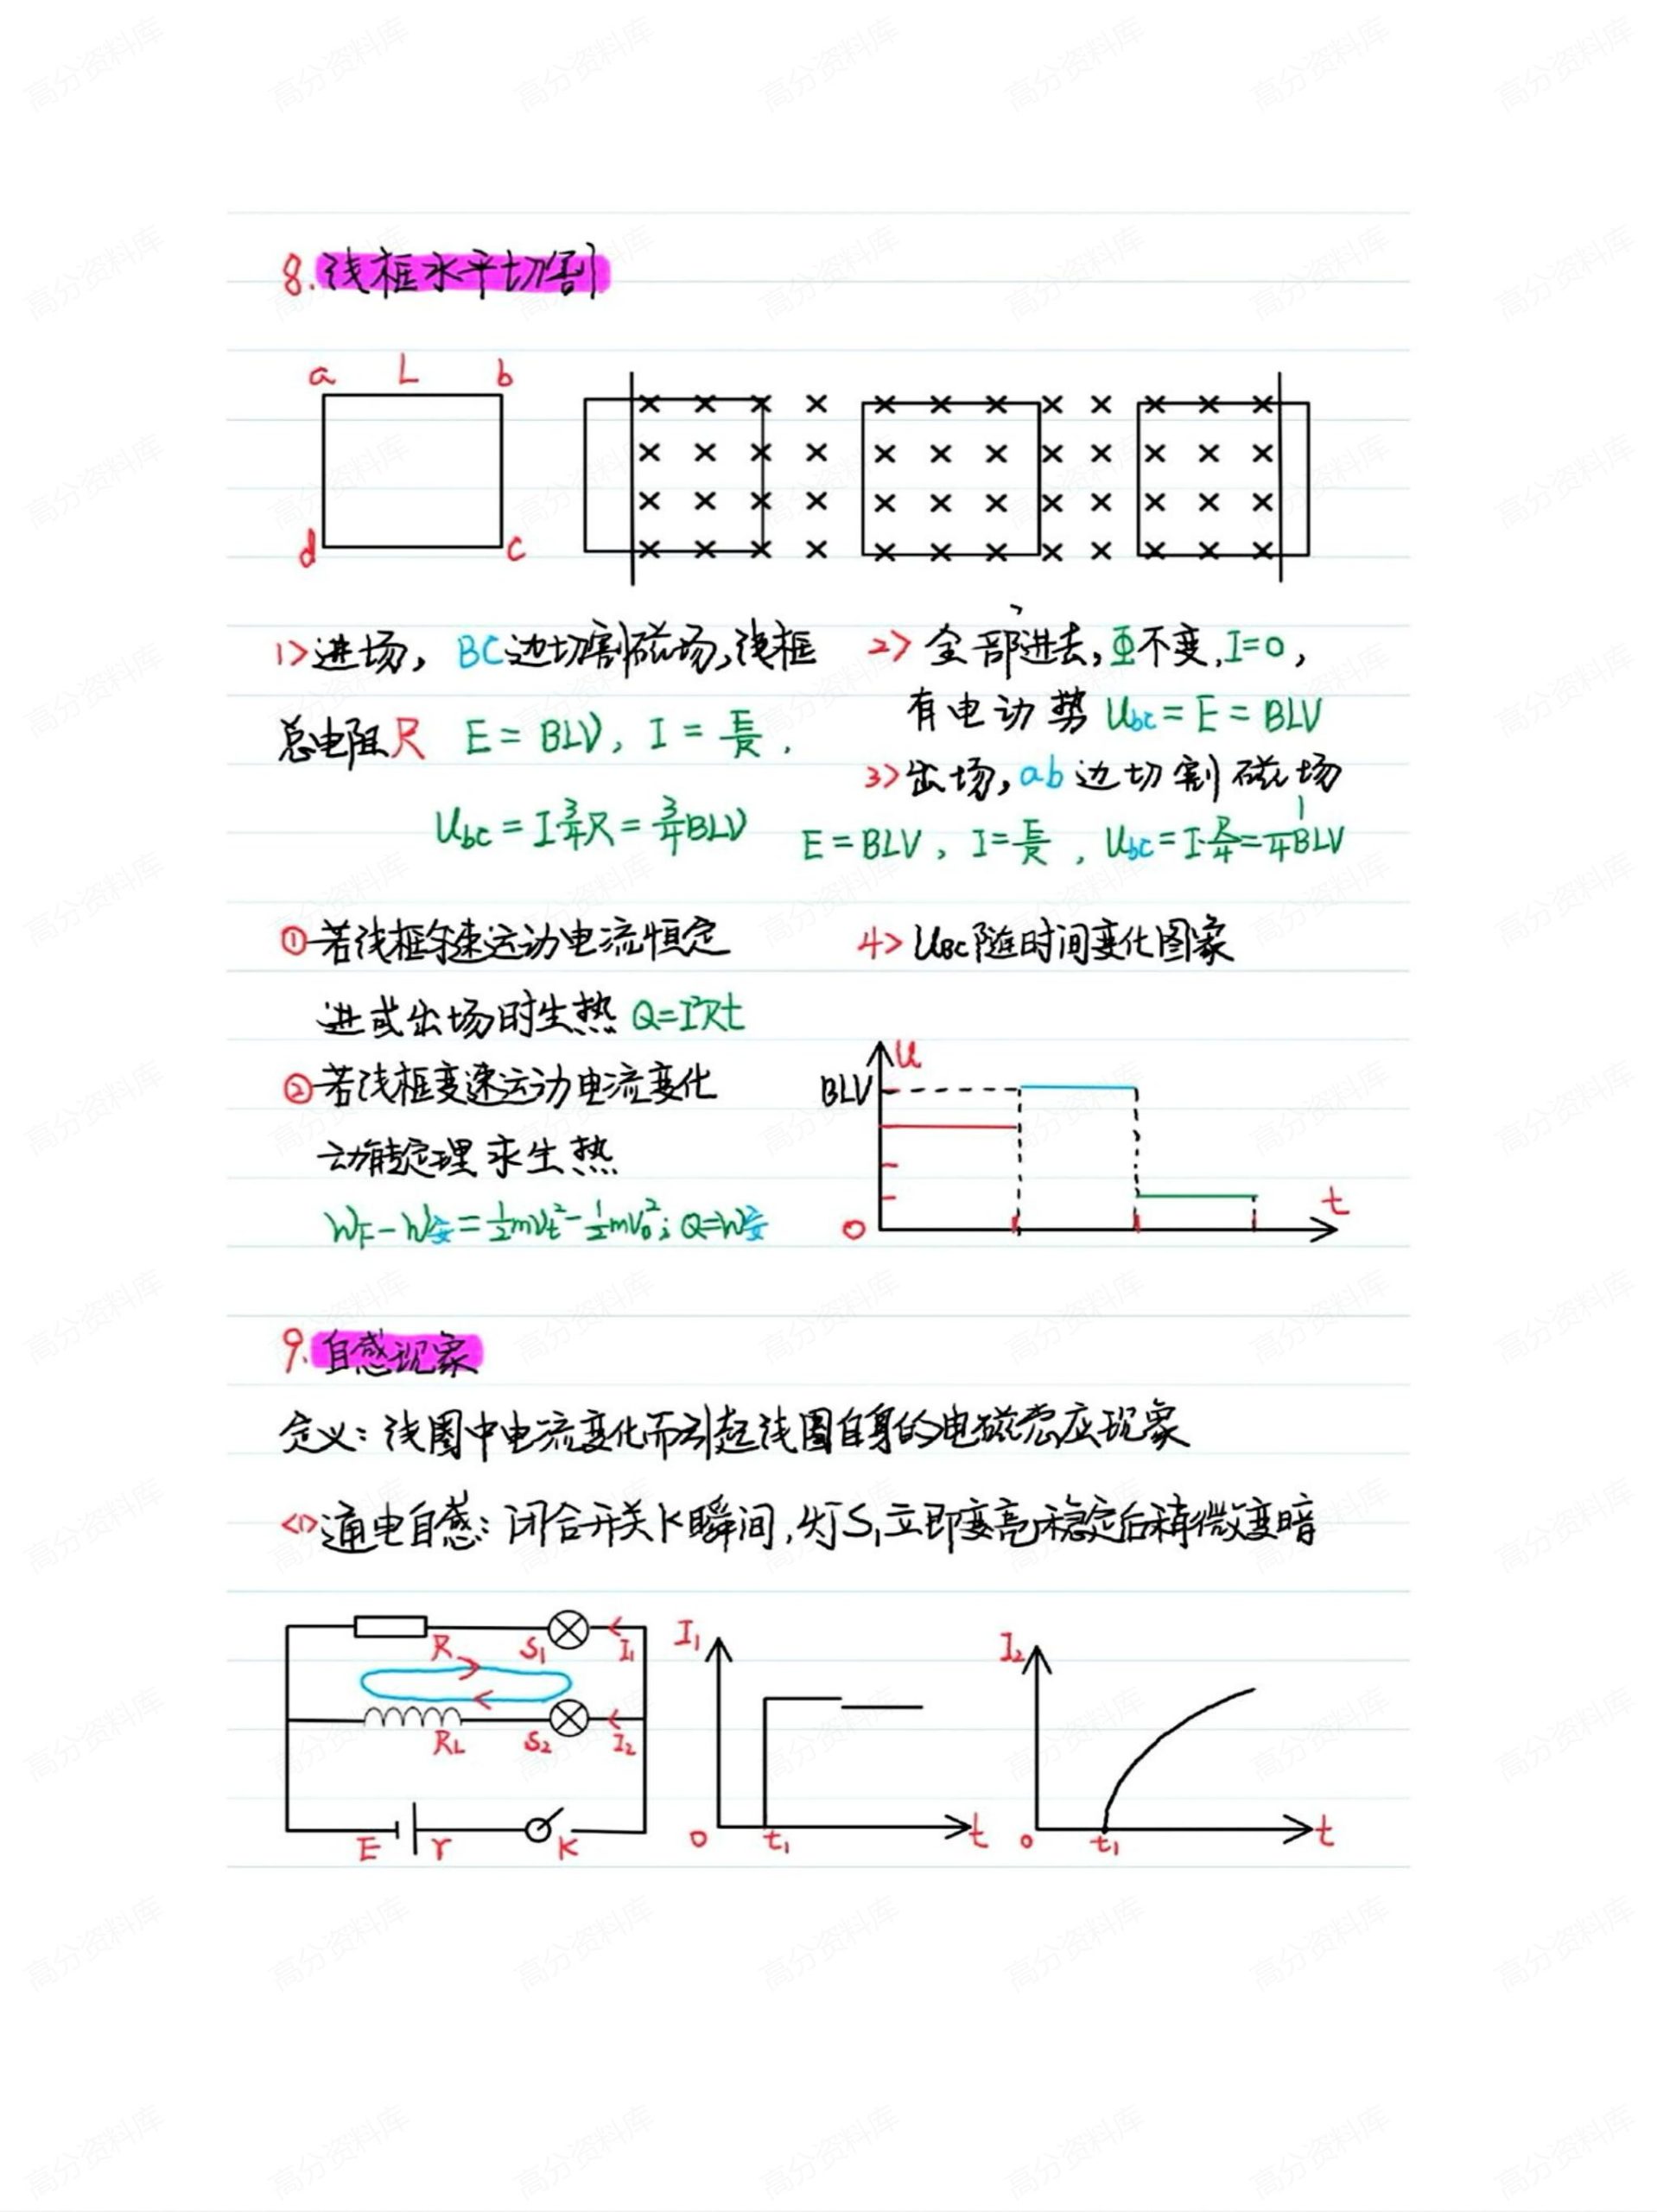 8.线框水平切割
a L b
d c
1>进场，BC边切割磁场，线框
总电阻R E=BLV，I=E/R，
Ubc=I¾R=¾BLV
2>全部进去，Φ不变，I=0，
有电动势Ubc=E=BLV
3>出场，ab边切割磁场
E=BLV，I=E/R，Ubc=I·R/4=1/4BLV
①若线框匀速运动电流恒定
进或出场时生热Q=I²Rt
②若线框变速运动电流变化
动能定理求生热
WF-W安=½mVt²-½mV0²；Q=W安
4>UBC随时间变化图象
U
BLV
O t
9.自感现象
定义：线圈中电流变化而引起线圈自身的电磁感应现象
<1>通电自感：闭合开关K瞬间，灯S1立即变亮稳定后稍微变暗
R S1 I1
RL S2 I2
E r K
I1
0 t1 t
I2
0 t1 t
高分资料库